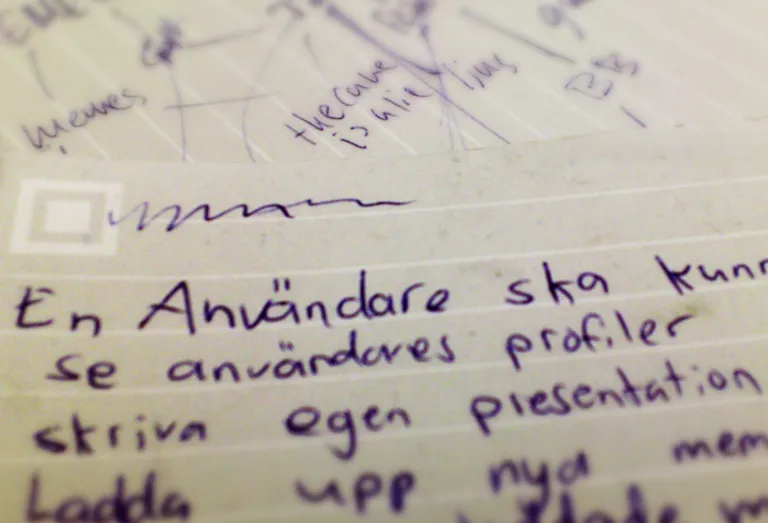 memes
the cake
is a lie
BB
En Användare ska kunn
se användares profiler
skriva egen presentation
Ladda upp nya mem